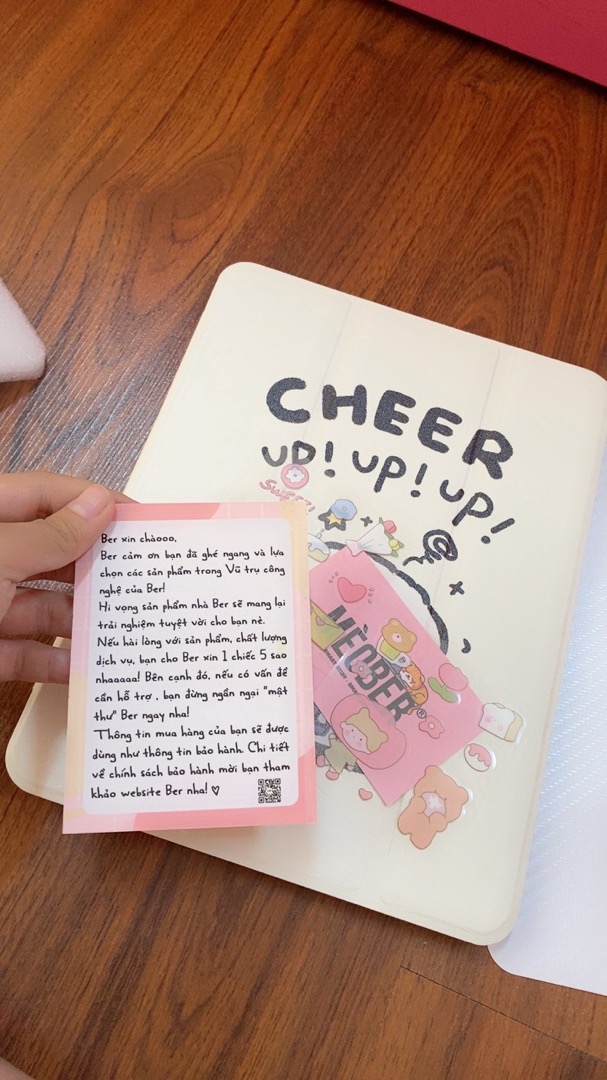 CHEER
UP! UP! UP!
SWEET!
MÈOBER
®
Ber xin chàooo,
Ber cảm ơn bạn đã ghé ngang và lựa
chọn các sản phẩm trong Vũ trụ công
nghệ của Ber!
Hi vọng sản phẩm nhà Ber sẽ mang lại
trải nghiệm tuyệt vời cho bạn nè.
Nếu hài lòng với sản phẩm, chất lượng
dịch vụ, bạn cho Ber xin 1 chiếc 5 sao
nhaaaaa! Bên cạnh đó, nếu có vấn đề
cần hỗ trợ , bạn đừng ngần ngại "mật
thư" Ber ngay nha!
Thông tin mua hàng của bạn sẽ được
dùng như thông tin bảo hành. Chi tiết
về chính sách bảo hành mời bạn tham
khảo website Ber nha! ♡